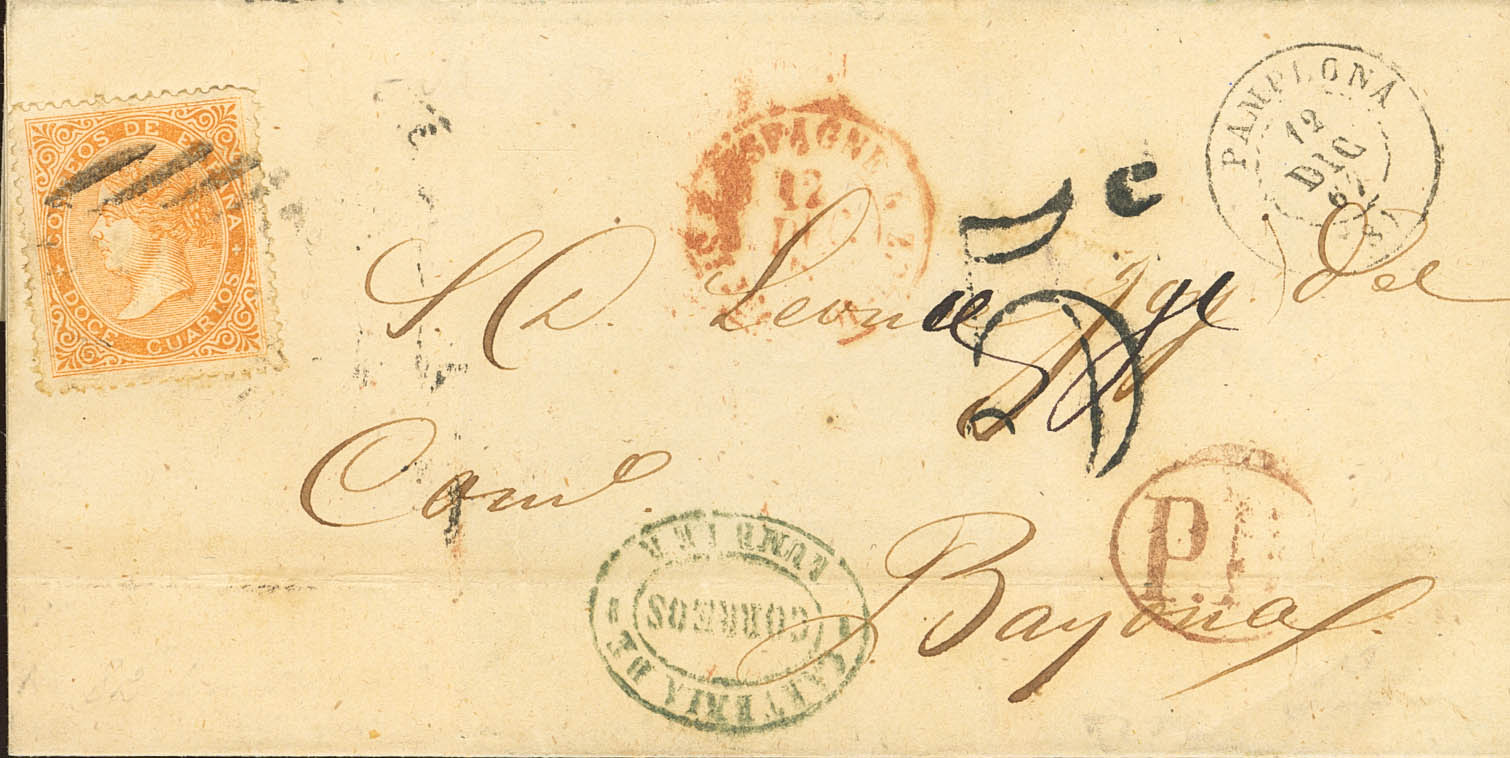 CORREOS DE ESPAÑA
DOCE CUARTOS
ESPAGNE
12
DIC
PAMPLONA
12
DIC
67
(8)
C
S. D. Leonce
del
Com.o
Bayona
P.
CARTERIA DE
LUMBIER
CORREOS